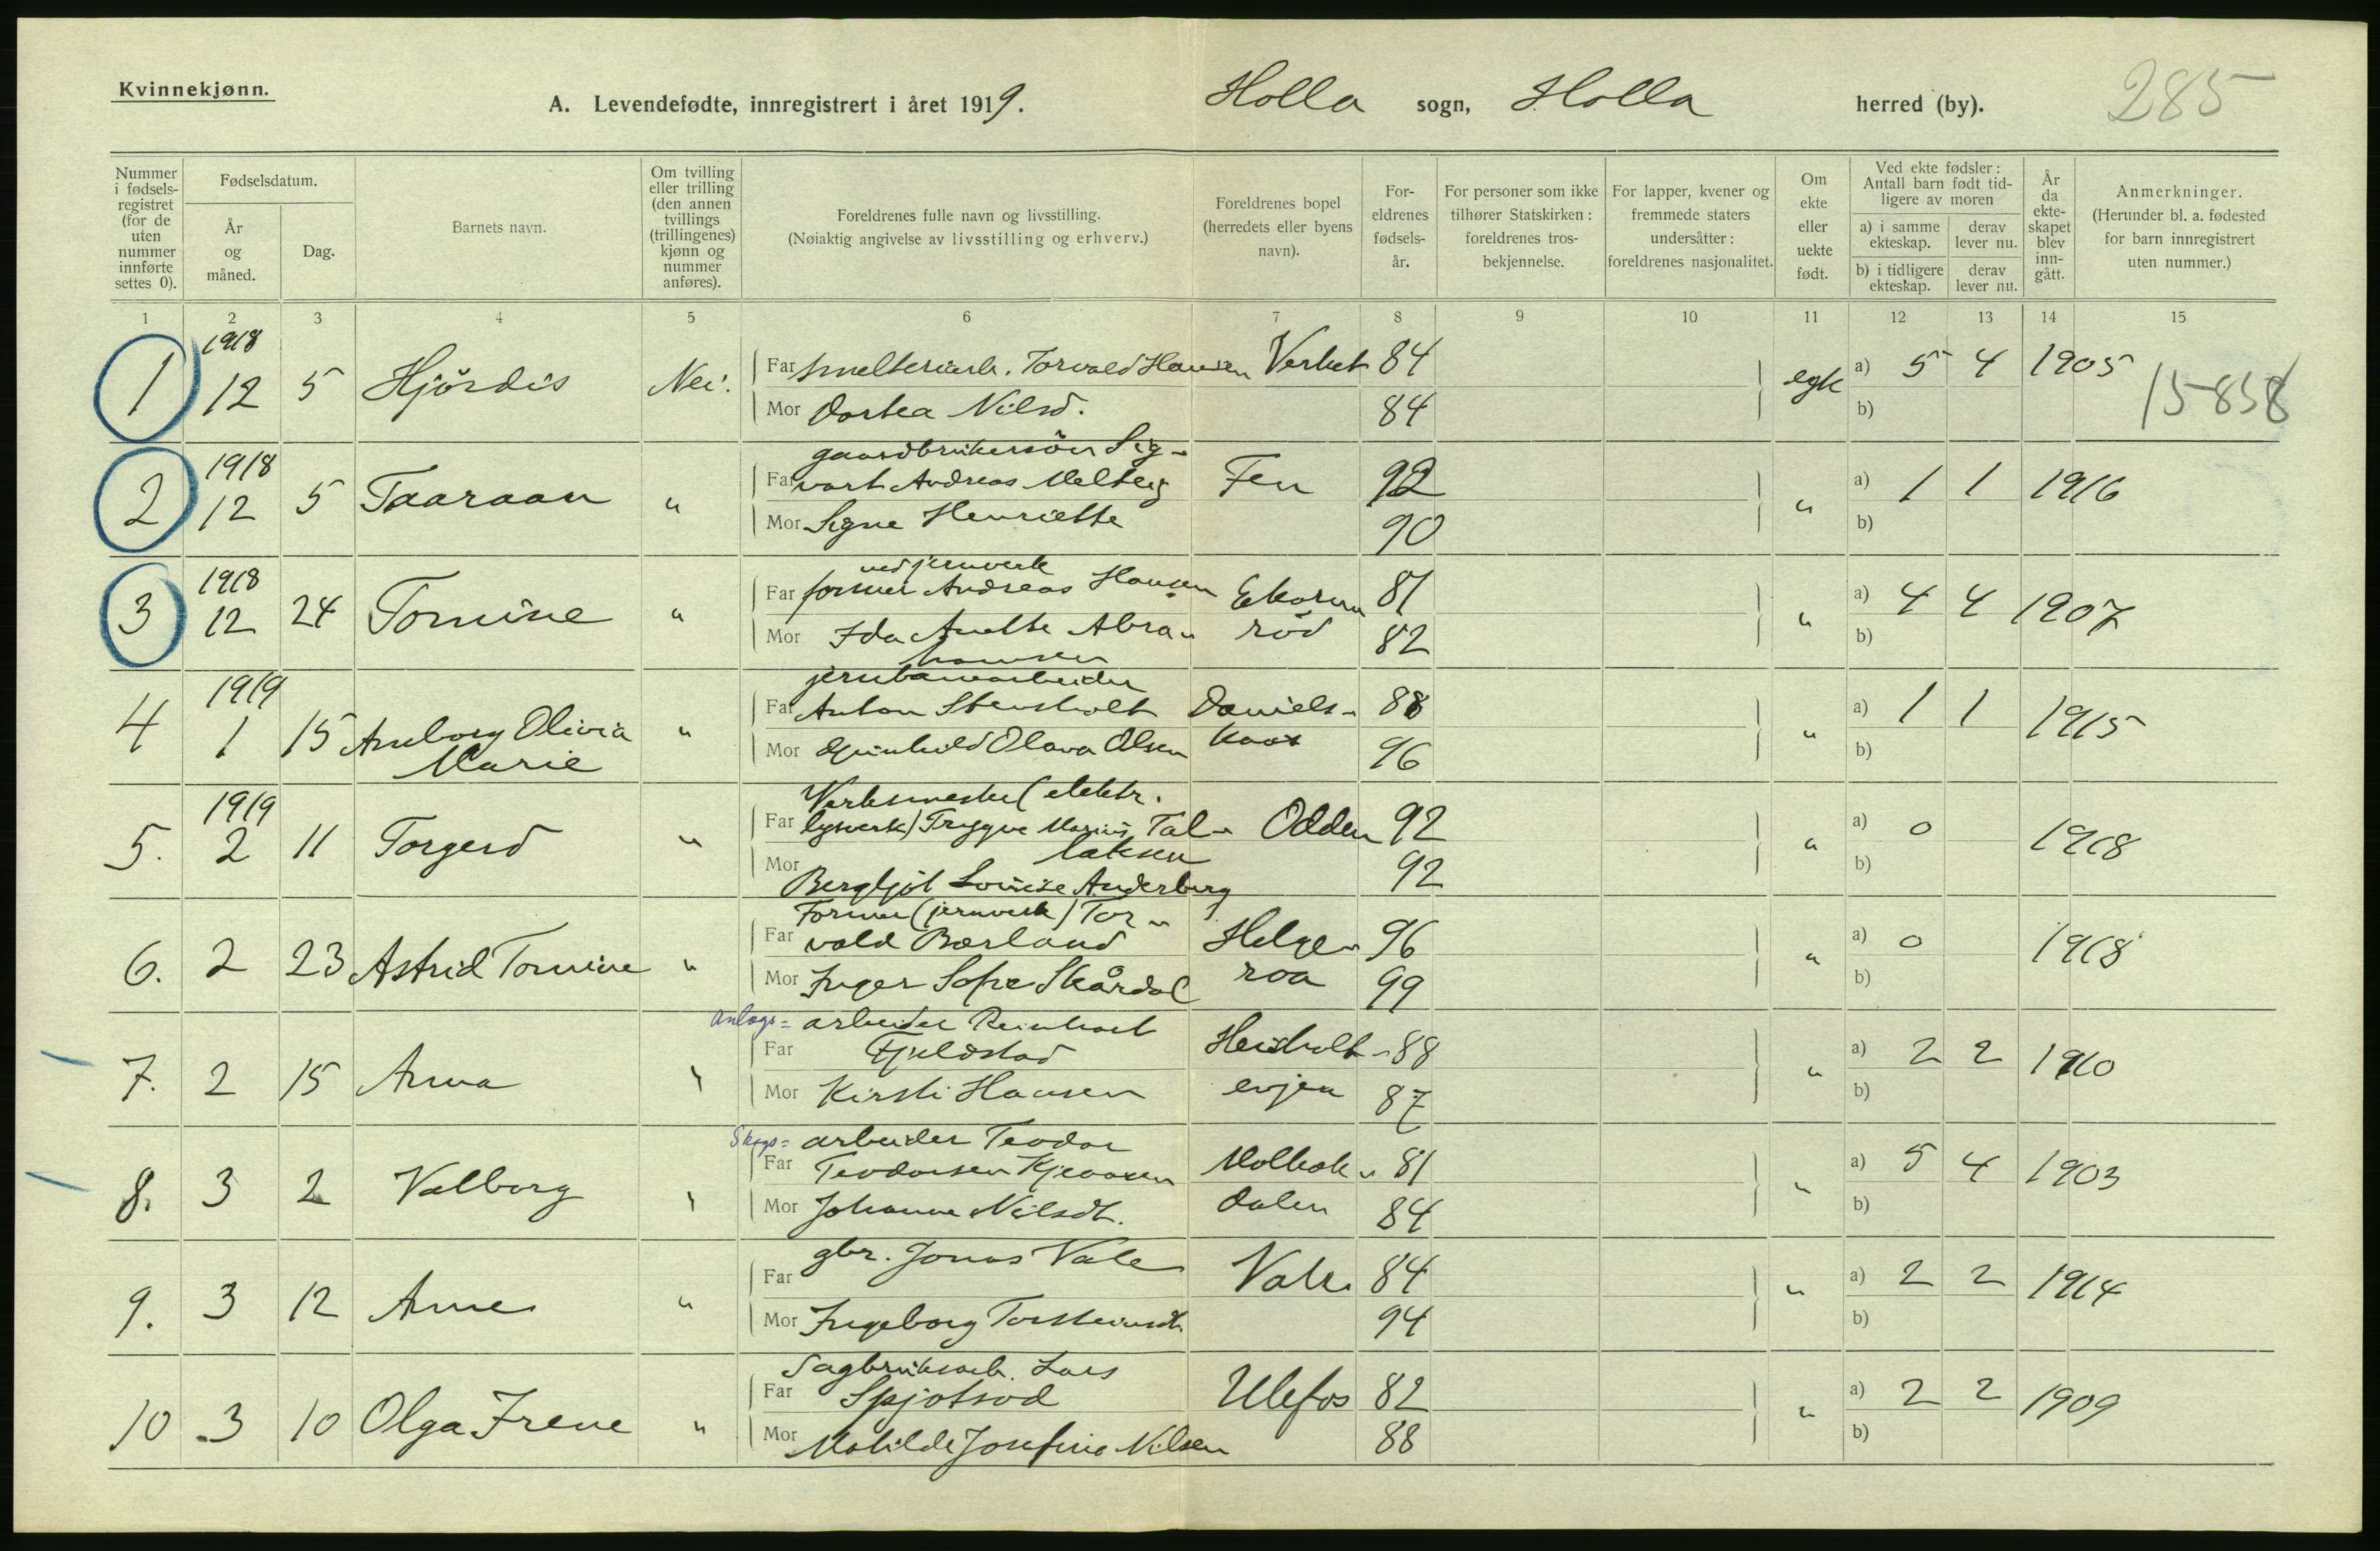 Kvinnekjønn.
A. Levendefødte, innregistrert i året 1919. Holla sogn, Holla herred (by). 285
Nummer i fødsels-registret (for de uten nummer innførte settes 0).
Fødselsdatum.
År og måned.
Dag.
Barnets navn.
Om tvilling eller trilling (den annen tvillings (trillingenes) kjønn og nummer anføres).
Foreldrenes fulle navn og livsstilling.
(Nøiaktig angivelse av livsstilling og erhverv.)
Foreldrenes bopel (herredets eller byens navn).
For-eldrenes fødsels-år.
For personer som ikke tilhører Statskirken: foreldrenes tros-bekjennelse.
For lapper, kvener og fremmede staters undersåtter: foreldrenes nasjonalitet.
Om ekte eller uekte født.
Ved ekte fødsler: Antall barn født tid-ligere av moren
a) i samme ekteskap. derav lever nu.
b) i tidligere ekteskap. derav lever nu.
År da ekte-skapet blev inn-gått.
Anmerkninger.
(Herunder bl. a. fødested for barn innregistrert uten nummer.)
1 2 3 4 5 6 7 8 9 10 11 12 13 14 15
1918
1 12 5 Hjördis Nei. Far smelteriarb. Torvald Hansen Verket 84 egte a) 5 4 1905
Mor Dortea Nilsd. 84 b) 15-858
gaardbrukersön Sig-
1918
2 12 5 Taaraan " Far vart Andreas Melteig Fen 92 " a) 1 1 1916
Mor Signe Henriette 90 b)
ved jernverk
1918
3 12 24 Tomine " Far former Andreas Hansen Ekorn 81 " a) 4 4 1907
Mor Ida Anette Abra- röd 82 b)
hamsen
jernbanearbeider
1919
4 1 15 Anborg Olivia " Far Anton Stensholt Daniels- 88 " a) 1 1 1915
Marie Mor Gunhild Olava Olsen kaas 96 b)
Verksmester (elektr.
1919
5. 2 11 Torgerd " Far lysverk) Trygve Marius Tal- Odden 92 " a) 0 1918
laksen
Mor Bergljot Lovise Anderberg 92 b)
Former (jernverk) Tor-
6. 2 23 Astrid Tomine " Far vald Børland Helge- 96 " a) 0 1918
Mor Inger Sofie Skårdal roa 99 b)
Anlægs= arbeider Reinhart
7. 2 15 Anna " Far Fjeldstad Heisholt- 88 " a) 2 2 1910
Mor Kirsti Hansen evjen 87 b)
Skogs= arbeider Teodor
8. 3 2 Valborg " Far Teodorsen Kjeaasen Holbæk- 81 " a) 5 4 1903
Mor Johanne Nilsdt. dalen 84 b)
gbr. Jonas Vale
9. 3 12 Anne " Far Vale 84 " a) 2 2 1914
Mor Ingeborg Torsteinsdt. 94 b)
Sagbruksarb. Lars
10 3 10 Olga Irene " Far Spjotsod Ulefos 82 " a) 2 2 1909
Mor Matilde Josefine Nilsen 88 b)